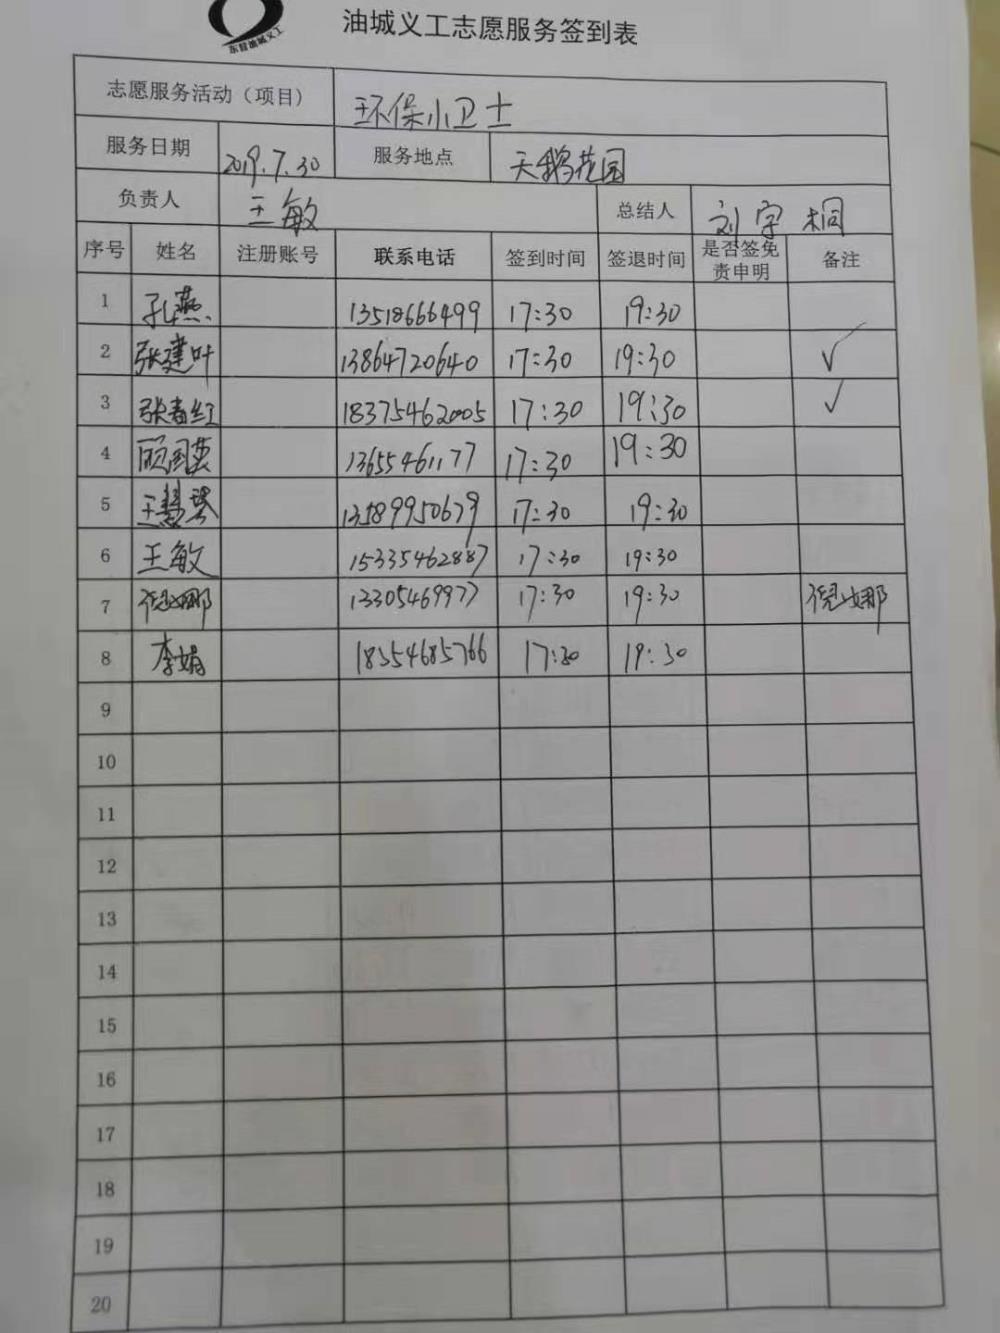 东营油城义工
油城义工志愿服务签到表
志愿服务活动（项目） 环保小卫士
服务日期 2019.7.30 服务地点 天鹅花园
负责人 王敏 总结人 刘宇桐
序号 姓名 注册账号 联系电话 签到时间 签退时间 是否签免责申明 备注
1 孔燕 13518666499 17:30 19:30
2 张建叶 13864720640 17:30 19:30 √
3 张春红 18375462005 17:30 19:30 √
4 顾国英 13655461177 17:30 19:30
5 王慧琴 13589950679 17:30 19:30
6 王敏 15335462887 17:30 19:30
7 倪娜 13305469977 17:30 19:30 倪娜
8 李娟 18354685766 17:30 19:30
9
10
11
12
13
14
15
16
17
18
19
20